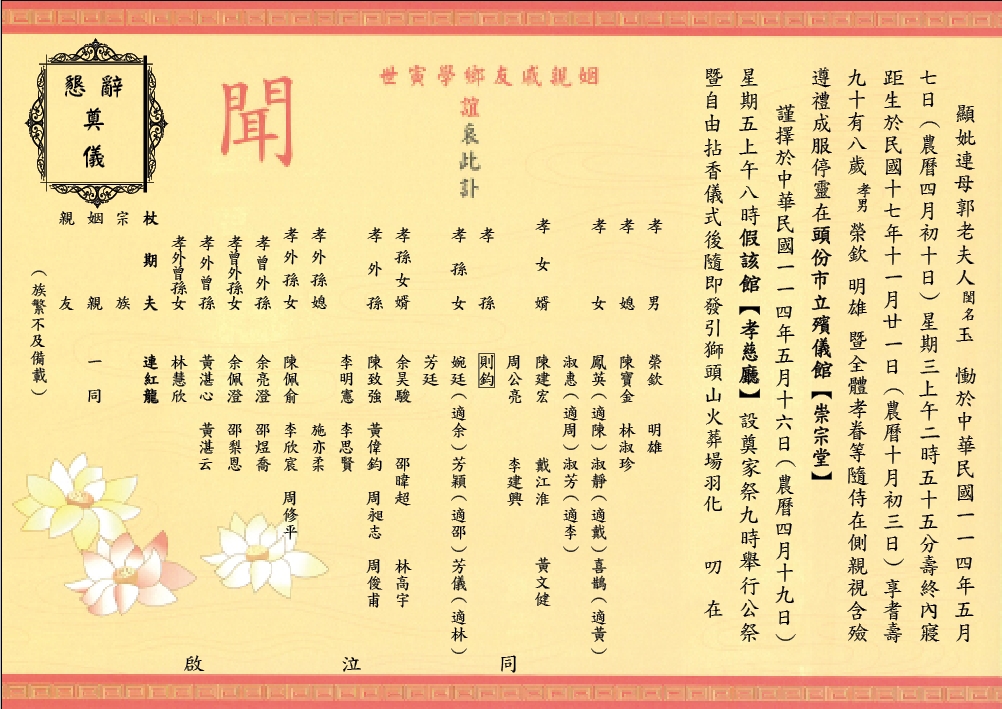 顯妣連母郭老夫人閨名玉 慟於中華民國一一四年五月
七日(農曆四月初十日)星期三上午二時五十五分壽終內寢
距生於民國十七年十一月廿一日(農曆十月初三日)享耆壽
九十有八歲 孝男 榮欽 明雄 暨全體孝眷等隨侍在側親視含殮
遵禮成服停靈在頭份市立殯儀館【崇宗堂】
謹擇於中華民國一一四年五月十六日(農曆四月十九日)
星期五上午八時假該館【孝慈廳】設奠家祭九時舉行公祭
暨自由拈香儀式後隨即發引獅頭山火葬場羽化 叨 在
姻親戚友鄉學寅世
誼哀此訃
聞
孝男 榮欽 明雄
孝媳 陳寶金 林淑珍
孝女 鳳英(適陳)淑靜(適戴)喜鵲(適黃)
淑惠(適周)淑芳(適李)
孝女婿 陳建宏 戴江淮 黃文健
周公亮 李建興
孝孫 則鈞
孝孫女 婉廷(適余)芳穎(適邵)芳儀(適林)
芳廷
孝孫女婿 余昊駿 邵暐超 林高宇
孝外孫 陳致強 黃偉鈞 周昶志 周俊甫
李明憲 李思賢
孝外孫媳 施亦柔
孝外孫女 陳佩俞 李欣宸 周修平
孝曾外孫 余亮澄 邵煜喬
孝曾外孫女 余佩澄 邵梨恩
孝外曾孫 黃湛心 黃湛云
孝外曾孫女 林慧欣
杖期夫 連紅龍
宗族
姻親 一同
親友
(族繁不及備載)
同泣啟
懇辭
奠
儀